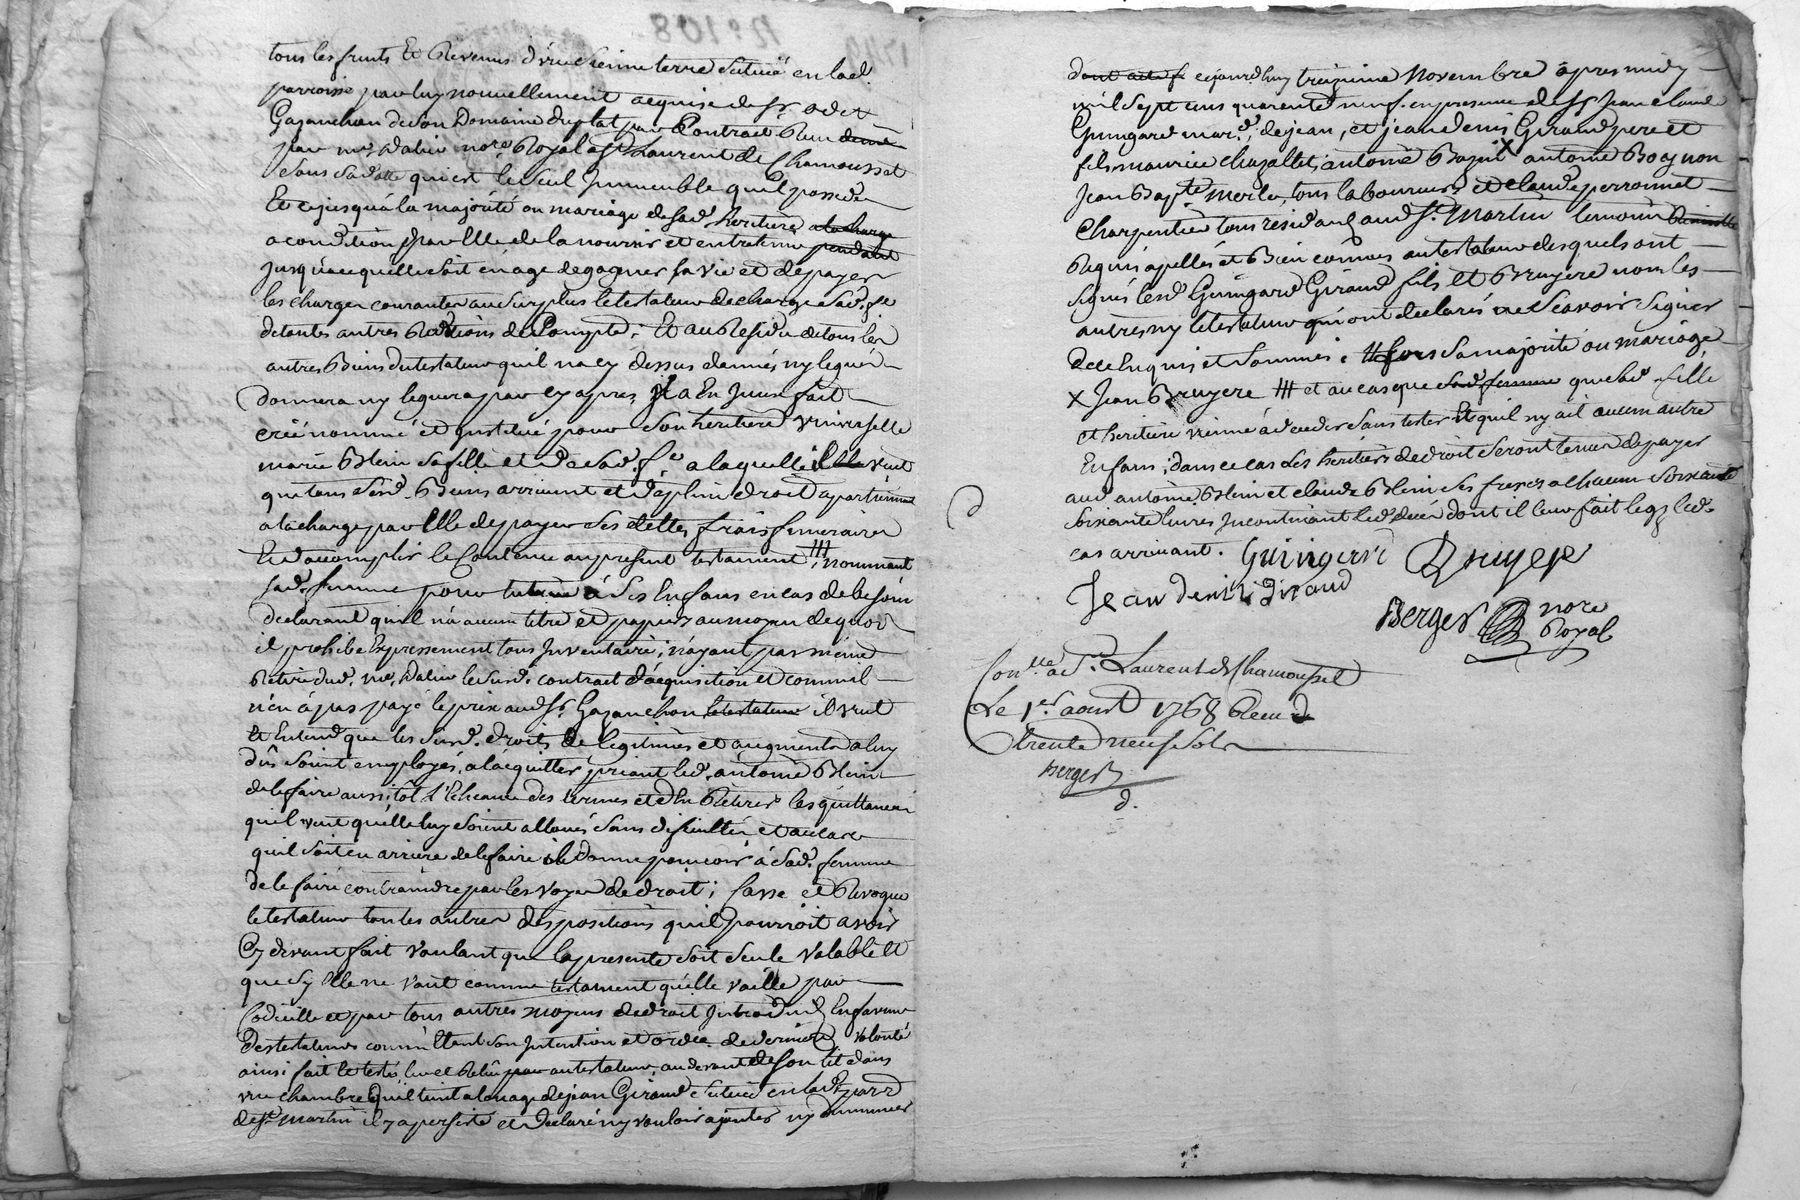 tous les fruits et Revenus d'une sienne terre située en lad.
parroisse par luy nouvellement acquise de Sr. odet
Gazanchon de son Domaine du plat par Contrat Receu
par me. Dalin nore. Royal a St Laurent de Chamousset
sous sa datte qui est le seul Immeuble quil possede
Et ce jusqu'a la majorité ou mariage de sad. heritiere a la charge
a condition par Elle de la nourrir et entretenir pendant
jusqu'a ce quelle soit en age de gagner sa vie et de payer
les charges courantes au surplus le testateur decharge sad. fe
de toutes autres Redditions de Compte; Et au Residu de tous les
autres Biens du testateur quil na cy dessus donnés ny legués
donnera ny leguera par cy apres Il a En Iceux fait
créé nommé et Institué pour son heritiere universelle
marie Blein sa fille et de sad. fe. a laquelle il veut
que tous sesd. Biens arrivent et de plein droit apartiennent
a la charge par Elle de payer ses dettes, frais funeraires
Et d'accomplir le Contenu au present testament, nommant
sad. femme pour tutrice à ses Enfans en cas de besoin
declarant quil n'a aucun titre et papiers au moyen de quoy
il prohibe Expressement tous Inventaire; n'ayant pas même
Retiré dud. me. Dalin le susd. contract d'acquisition et comme il
n'en a pas payé le prix aud. Sr. Gazanchon le testateur il veut
et Entend que les susd. droits de legitimes et augments a luy
dûs soient employés a l'acquitter priant led. antoine Blein
de le faire aussitôt l'Echeance des termes et d'En Retirer les quittances
quil veut qu'elle luy soient alloués sans dificultés et au cas
quil soit en arriere de le faire il donne pouvoir à sad. femme
de le faire contraindre par les voyes de droit; Casse et Revoque
le testateur toutes autres dispositions quil pourroit avoir
Cy devant fait voulant que la presente soit seule valable et
que sy Elle ne vaut comme testament qu'elle vaille par
Codicille et par tous autres moyens de droit Introduits En faveur
des testateurs comme Etant son Intention et ordce. de derniere volonté
ainsi fait le testé leu et Relû au testateur, au devant de son lit dans
une chambre quil tient a louage de jean Giraud située en lad. parr.
de St. martin il y a persisté et declaré ny vouloir ajouter ny dimminuer
dont acte f. cejourd'huy treizieme Novembre apres midy
mil sept cens quarente neuf. en presence de Sr. jean claude
Guingard mard. de jean, et jean denis Giraud pere et
fils maurice chazallet, antoine Bazin X antoine Bognon
Jean Bapte. merle, tous laboureurs et claude perronnet
Charpentier tous residants aud. St. Martin temoins
Requis apellés et Bien connus au testateur desquels ont
signés lesd. Guingard Giraud fils et Bruyere non les
autres ny le testateur qui ont declarés ne sçavoir signer
de ce Enquis et sommés. # fors sa majorité ou mariage
X Jean Bruyere ### et au cas que sad. femme que sad. fille
et heritiere vienne à deceder sans tester et quil ny ait aucun autre
Enfans; dans ce cas ses heritiers de droit seront tenus de payer
aud. antoine Blein et claude Blein ses freres a chacun soixante
soixante livres Incontinant led. deces dont il leur fait legs led.
cas arrivant. Guingard Bruyere
Jean denis Giraud
Berger nore
Royal
Conllé a St. Laurent de Chamousset
Le 1er. aoust 1768 Receu
trente neuf sols
Berger
d.